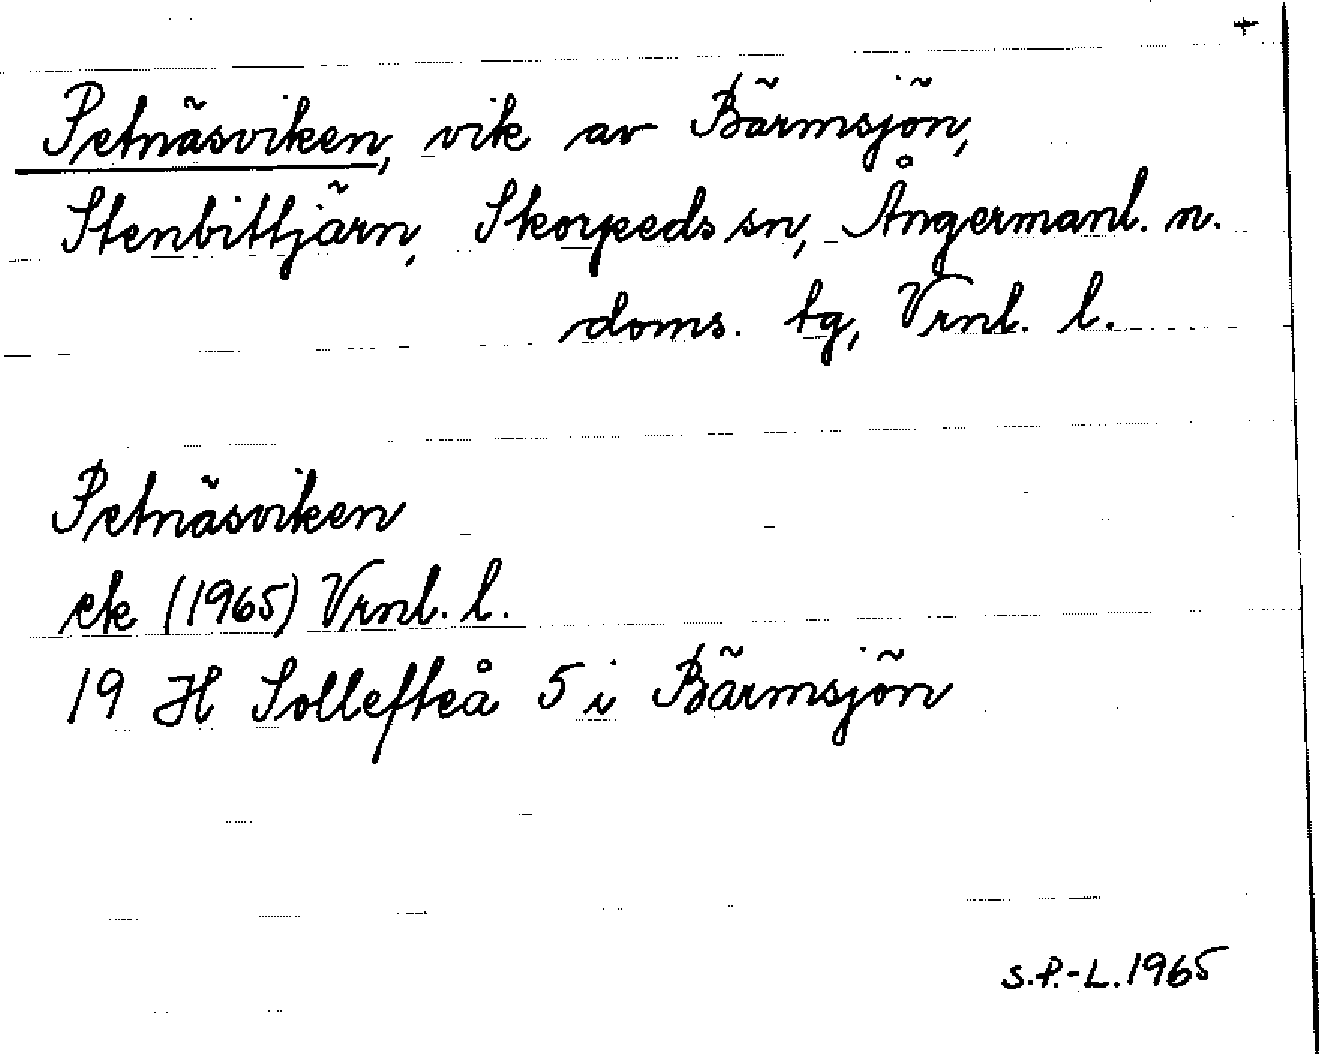 +
Petnäsviken, vik av Bärmsjön,
Stenbittjärn, Skorpeds sn, Ångermanl. n.
doms. tg, Vrnl. l.
Petnäsviken
ek (1965) Vrnl. l.
19 H Sollefteå 5 i Bärmsjön
S.P.-L. 1965